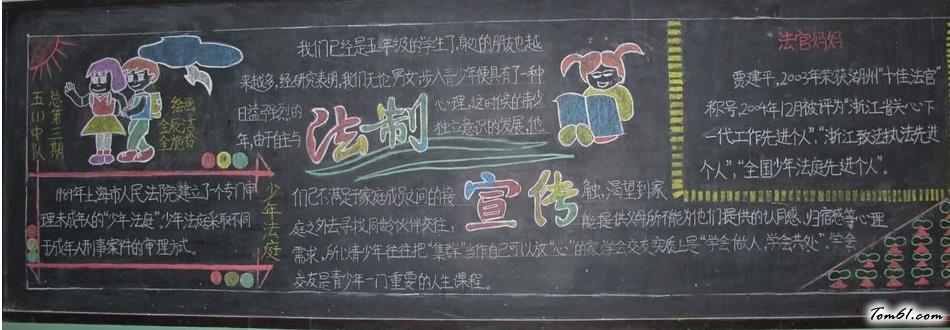 总第三期
五(1)中队
绘画
1987年上海市人民法院建立了个专门审
理未成年人的“少年法庭”.少年法庭采取不同
于成年人刑事案件的审理方式。
少年法庭
我们已经是五年级的学生了,身边的朋友也越
来越多,经研究表明,我们无论男女,步入青少年便具有了一种
日益强烈的
心理,这时候的青少
年,由于在与
独立意识的发展,他
法制
宣传
们已不满足于家庭成员之间的接
触,渴望到家
庭之外去寻找同龄伙伴交往,
能提供父母所不能为他们提供的认同感、归宿感等心理
需求,所以青少年往往把“集群”当作自己可以放“心”的家,学会交友实质上是“学会做人,学会共处”,学会
交友是青少年一门重要的人生课程。
法官妈妈
贾建平,2003年荣获湖州“十佳法官”
称号,2004年12月被评为“浙江省关心下
一代工作先进个人”,“浙江政法执法先进
个人”,“全国少年法庭先进个人”。
Tom61.com